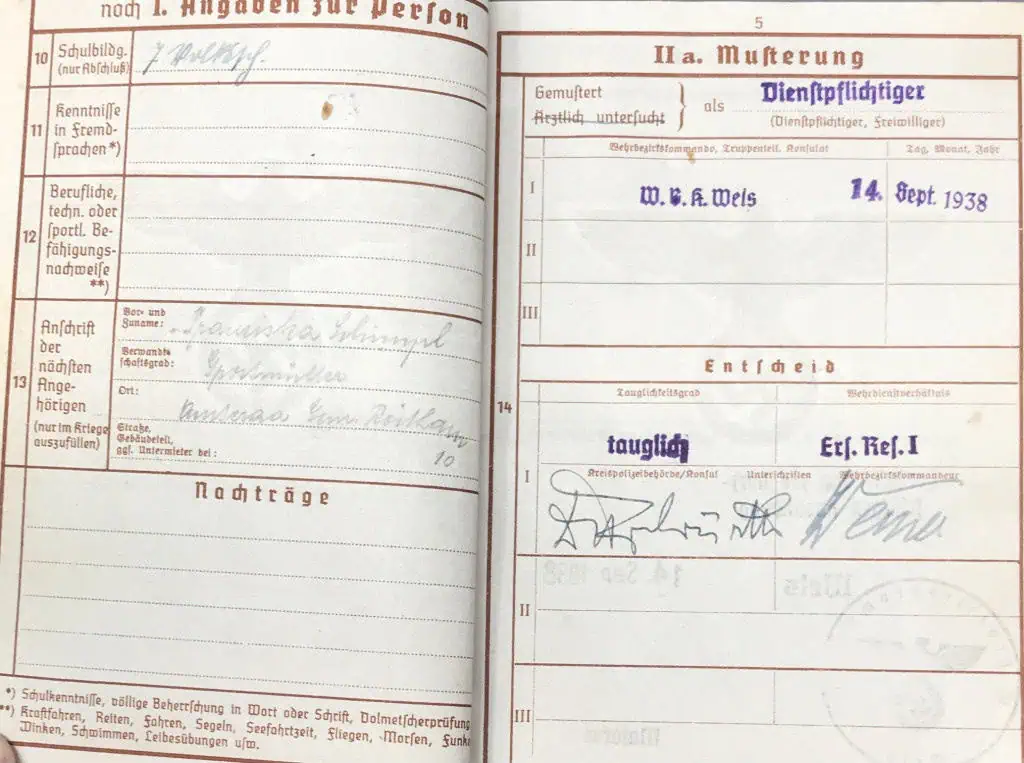 noch I. Angaben zur Person
10 Schulbildg. (nur Abschluß)
7 Volkssch.
11 Kenntnisse in Fremd-
sprachen*)
12 Berufliche,
techn. oder
sportl. Be-
fähigungs-
nachweise
**)
13 Anschrift
der
nächsten
Ange-
hörigen
(nur im Kriege
auszufüllen)
Vor- und
Zuname: Franziska
Verwandt-
schaftsgrad:
Ort:
Straße,
Gebäudeteil,
ggf. Untermieter bei: 10
Nachträge
*) Schulkenntnisse, völlige Beherrschung in Wort oder Schrift, Dolmetscherprüfung
**) Kraftfahren, Reiten, Fahren, Segeln, Seefahrtzeit, Fliegen, Morsen, Funk
Winken, Schwimmen, Leibesübungen usw.
5
II a. Musterung
Gemustert
Ärztlich untersucht
als Dienstpflichtiger
(Dienstpflichtiger, Freiwilliger)
Wehrbezirkskommando, Truppenteil, Konsulat Tag, Monat, Jahr
I W. B. K. Wels 14. Sept. 1938
II
III
Entscheid
14
Tauglichkeitsgrad Wehrdienstverhältnis
I tauglich Ers. Res. I
Kreispolizeibehörde/Konsul Unterschriften Wehrbezirkskommandeur
II
III